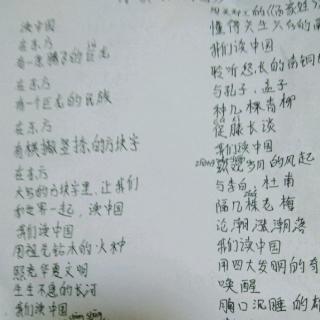 读中国
在东方
有一条腾飞的巨龙
在东方
有一个巨龙的民族
在东方
有横撇竖捺的方块字
在东方
大写的方块字里，让我们
和世界一起，读中国
我们读中国
用祖先钻木的火种
照亮华夏文明
生生不息的长河
我们读中国
的《百家姓》
懂得先生
我们读中国
聆听悠长的
与孔子、孟子
种几棵青柳
促膝长谈
我们读中国
岁月的风起
与李白、杜甫
隔几株老梅
论潮涨潮落
我们读中国
用四大发明的奇
唤醒
胸口沉睡的雄